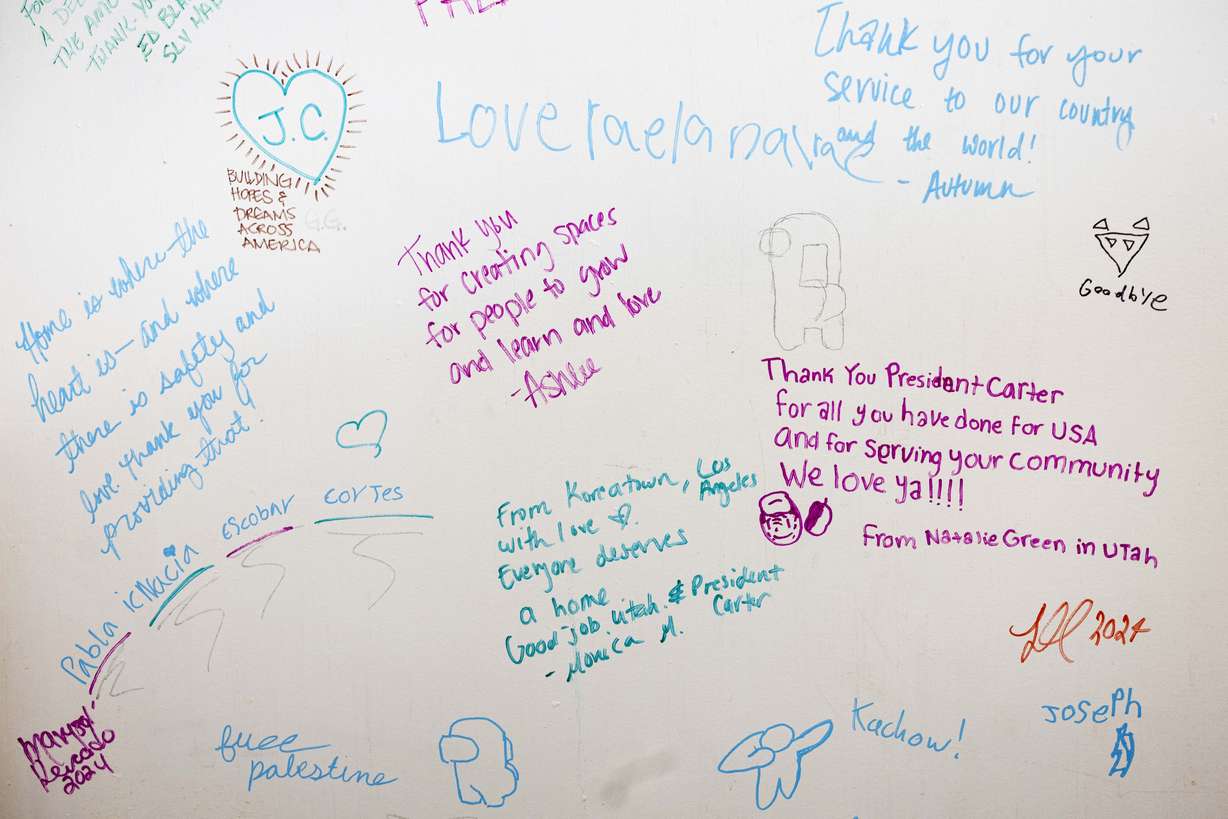 A DE
THE AM
THANK YO
ED BLA
SLV HA
J.C.
BUILDING
HOPES &
DREAMS
ACROSS
AMERICA
G.G.
Love raelana rae
Thank you for your
service to our country
and the world!
- Autumn
Goodbye
Home is where the
heart is—and where
there is safety and
love. Thank you for
providing that!
Thank you
for creating spaces
for people to grow
and learn and love
-Ashlee
Thank You President Carter
for all you have done for USA
and for serving your community
We love ya!!!!
From Natalie Green in UTah
Pabla icNacia Escobar corTes
From Koreatown, Los Angeles
with love
Everyone deserves
a home
Good job Utah. & President Carter
- Monica M.
2024
2024
free
palestine
Kachow!
JOSEPH